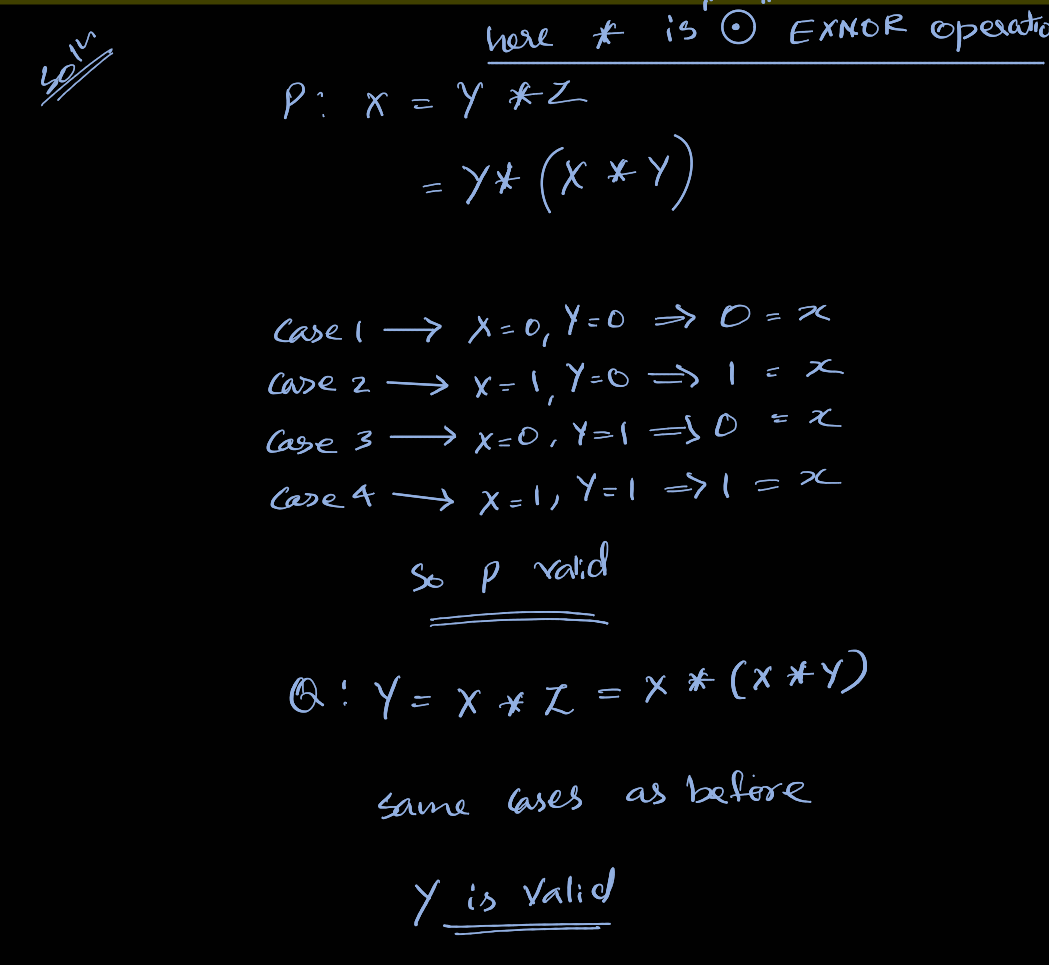 soln
here * is ⊙ EXNOR operatio
P: X = Y * Z
= Y * (X * Y)
Case 1 → X=0, Y=0 ⇒ 0 = x
Case 2 → X=1, Y=0 ⇒ 1 = x
Case 3 → X=0, Y=1 ⇒ 0 = x
Case 4 → X=1, Y=1 ⇒ 1 = x
So P valid
Q: Y = X * Z = X * (X * Y)
same cases as before
Y is valid